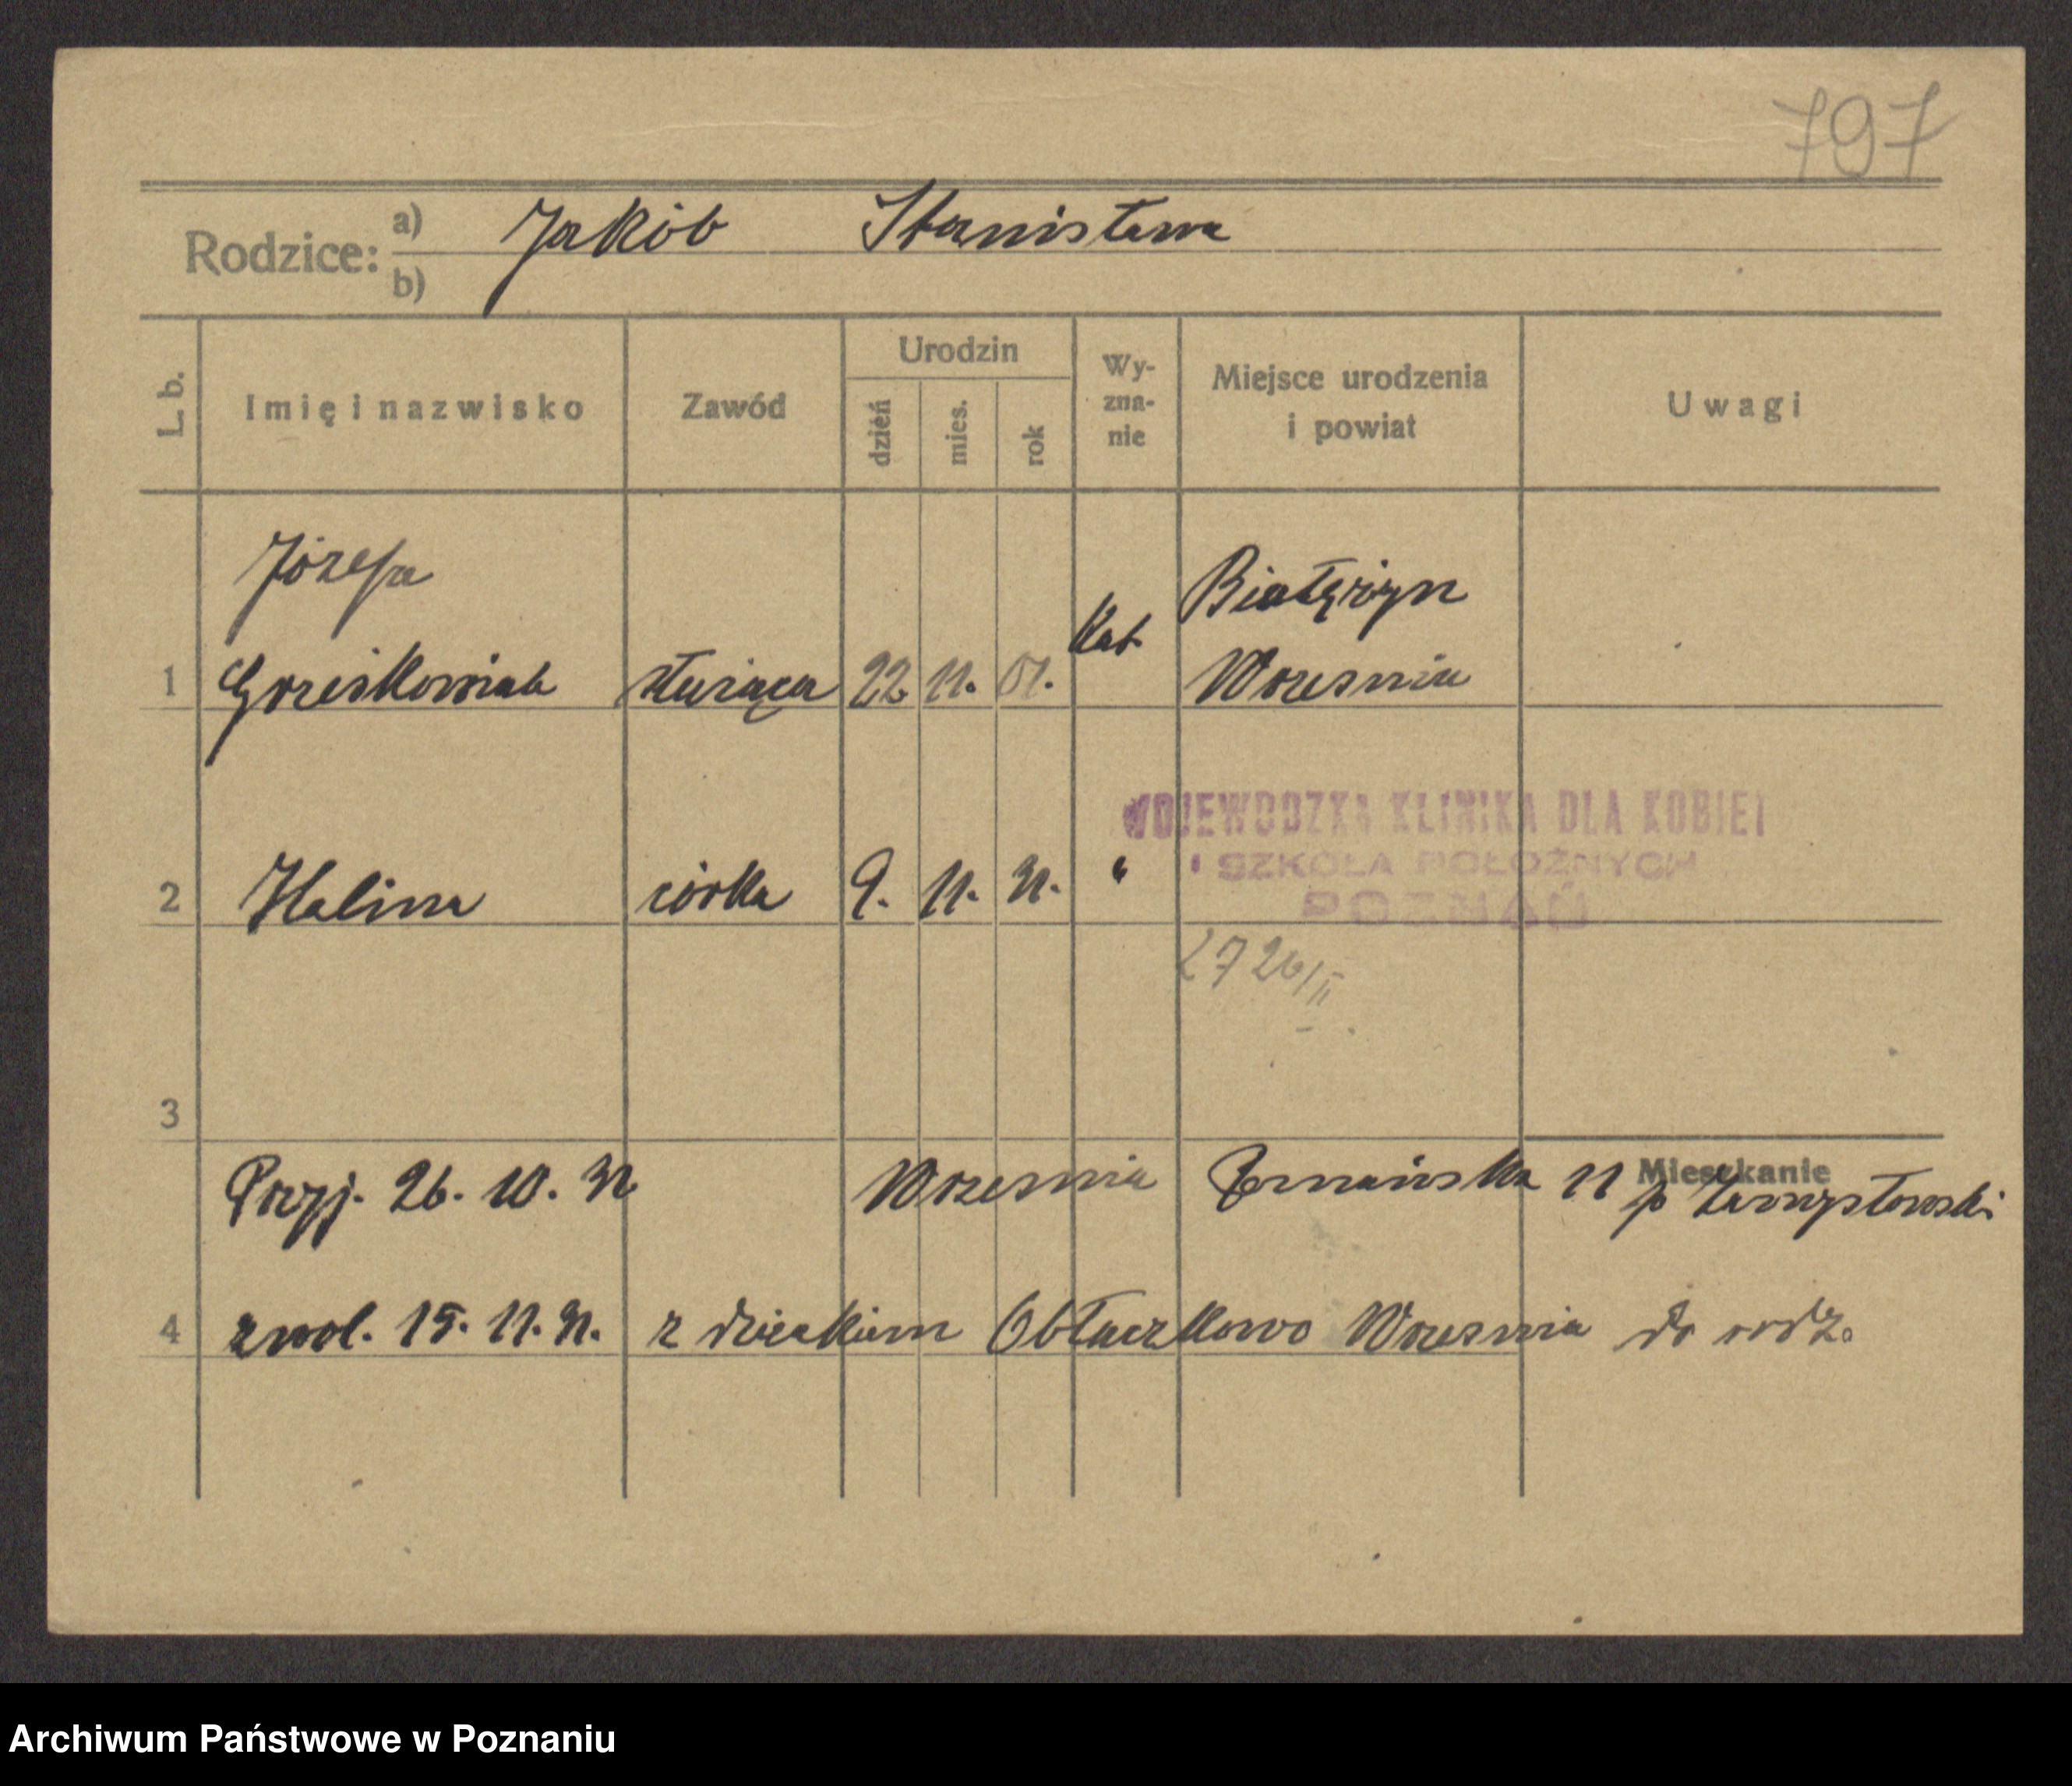 797
Rodzice: a) Jakób Stanisława
b)
L. b. Imię i nazwisko Zawód Urodzin dzień mies. rok Wy-zna-nie Miejsce urodzenia i powiat Uwagi
Józefa Kat Białężyn
1 Grześkowiak służąca 22 11. 01. Września
WOJEWODZKA KLINIKA DLA KOBIET
i SZKOŁA POŁOŻNYCH
POZNAŃ
2 Halina córka 9. 11. 31. "
2726/II
3
Mieszkanie
Przyj. 26. 10. 31 Września 11 p
4 zwol. 15. 11. 31. z dzieckiem Obłaczkowo Września do rodz.
Archiwum Państwowe w Poznaniu